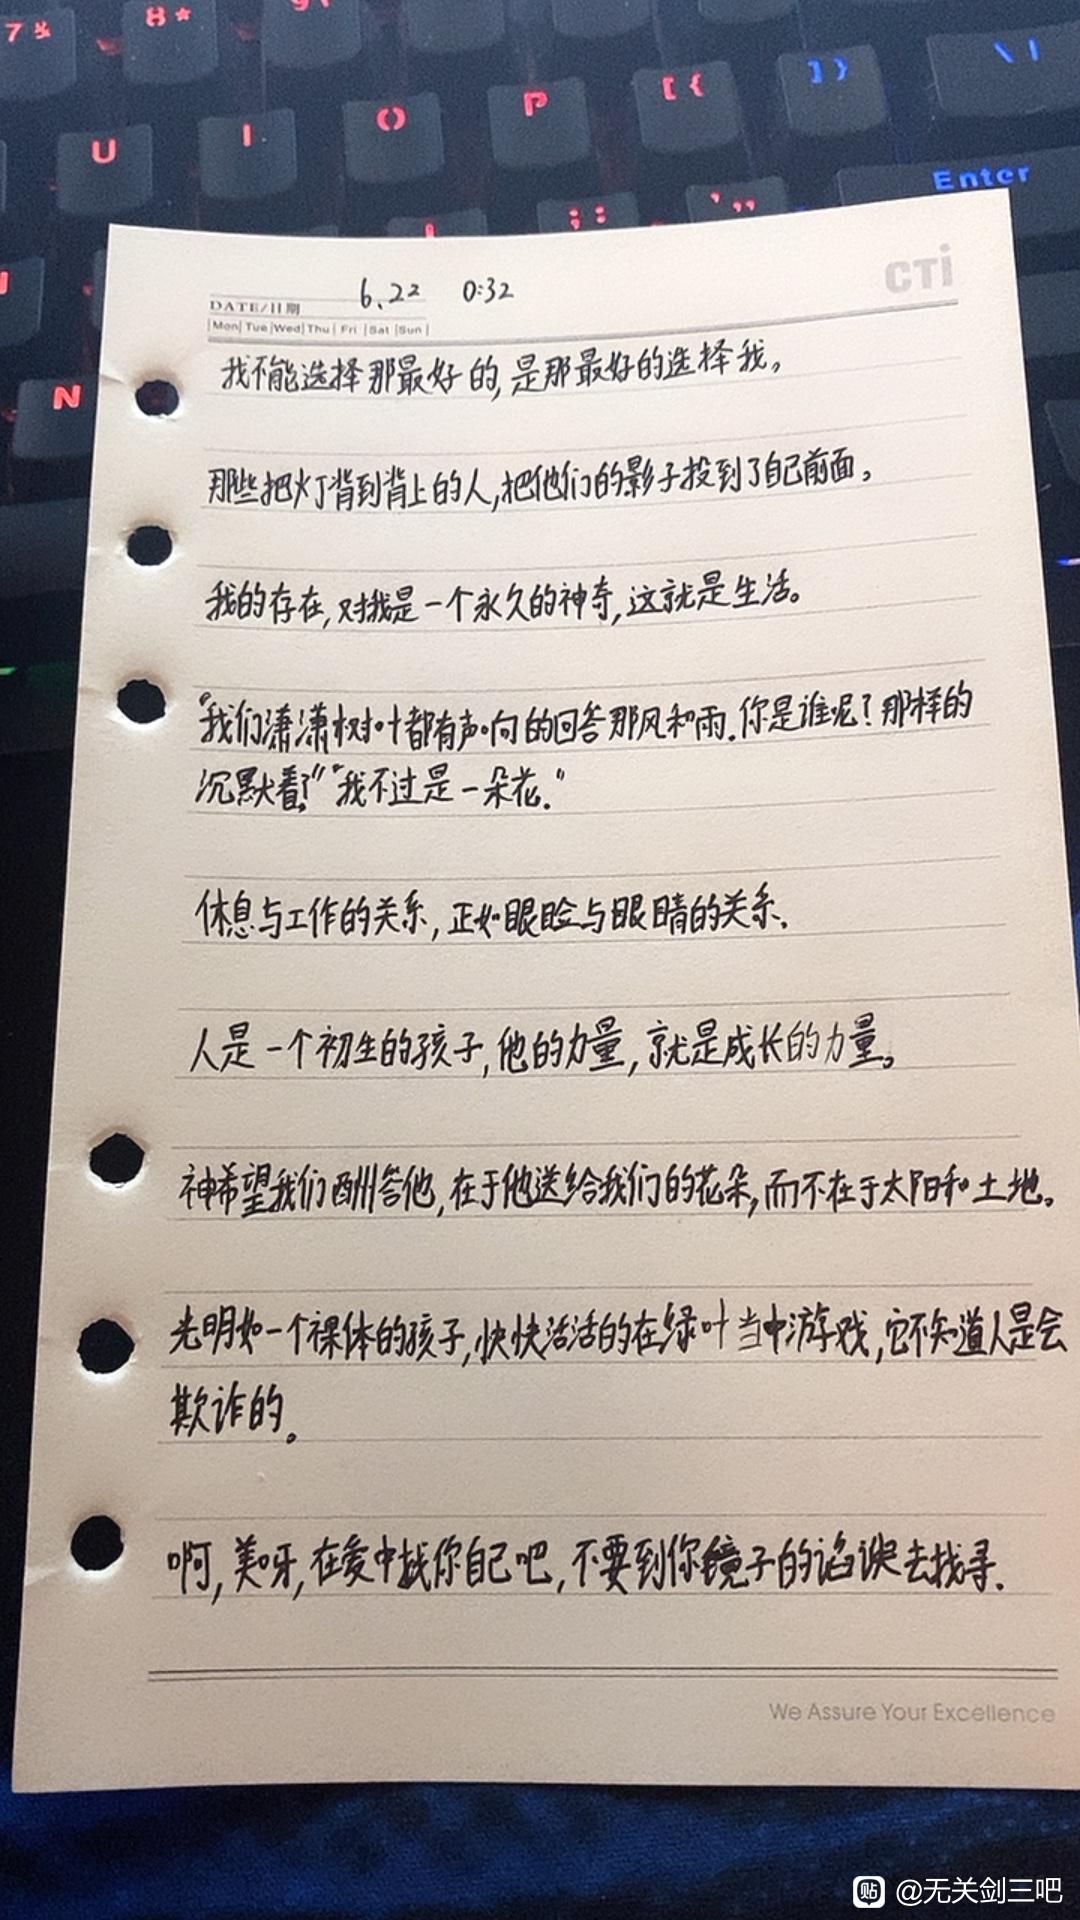 7 &
8 *
9 (
U
I
O
P
[ {
] }
\ |
Enter
L
; :
' "
N
CTi
6.22 0:32
DATE/日期
Mon Tue Wed Thu Fri Sat Sun
我不能选择那最好的,是那最好的选择我。
那些把灯背到背上的人,把他们的影子投到了自己前面。
我的存在,对我是一个永久的神奇,这就是生活。
“我们潇潇树叶都有声响的回答那风和雨.你是谁呢?那样的
沉默着?”“我不过是一朵花.”
休息与工作的关系,正如眼睑与眼睛的关系.
人是一个初生的孩子,他的力量,就是成长的力量。
神希望我们酬答他,在于他送给我们的花朵,而不在于太阳和土地。
光明如一个裸体的孩子,快快活活的在绿叶当中游戏,它不知道人是会
欺诈的。
啊,美呀,在爱中找你自己吧,不要到你镜子的谄谀去找寻.
We Assure Your Excellence
贴 @无关剑三吧